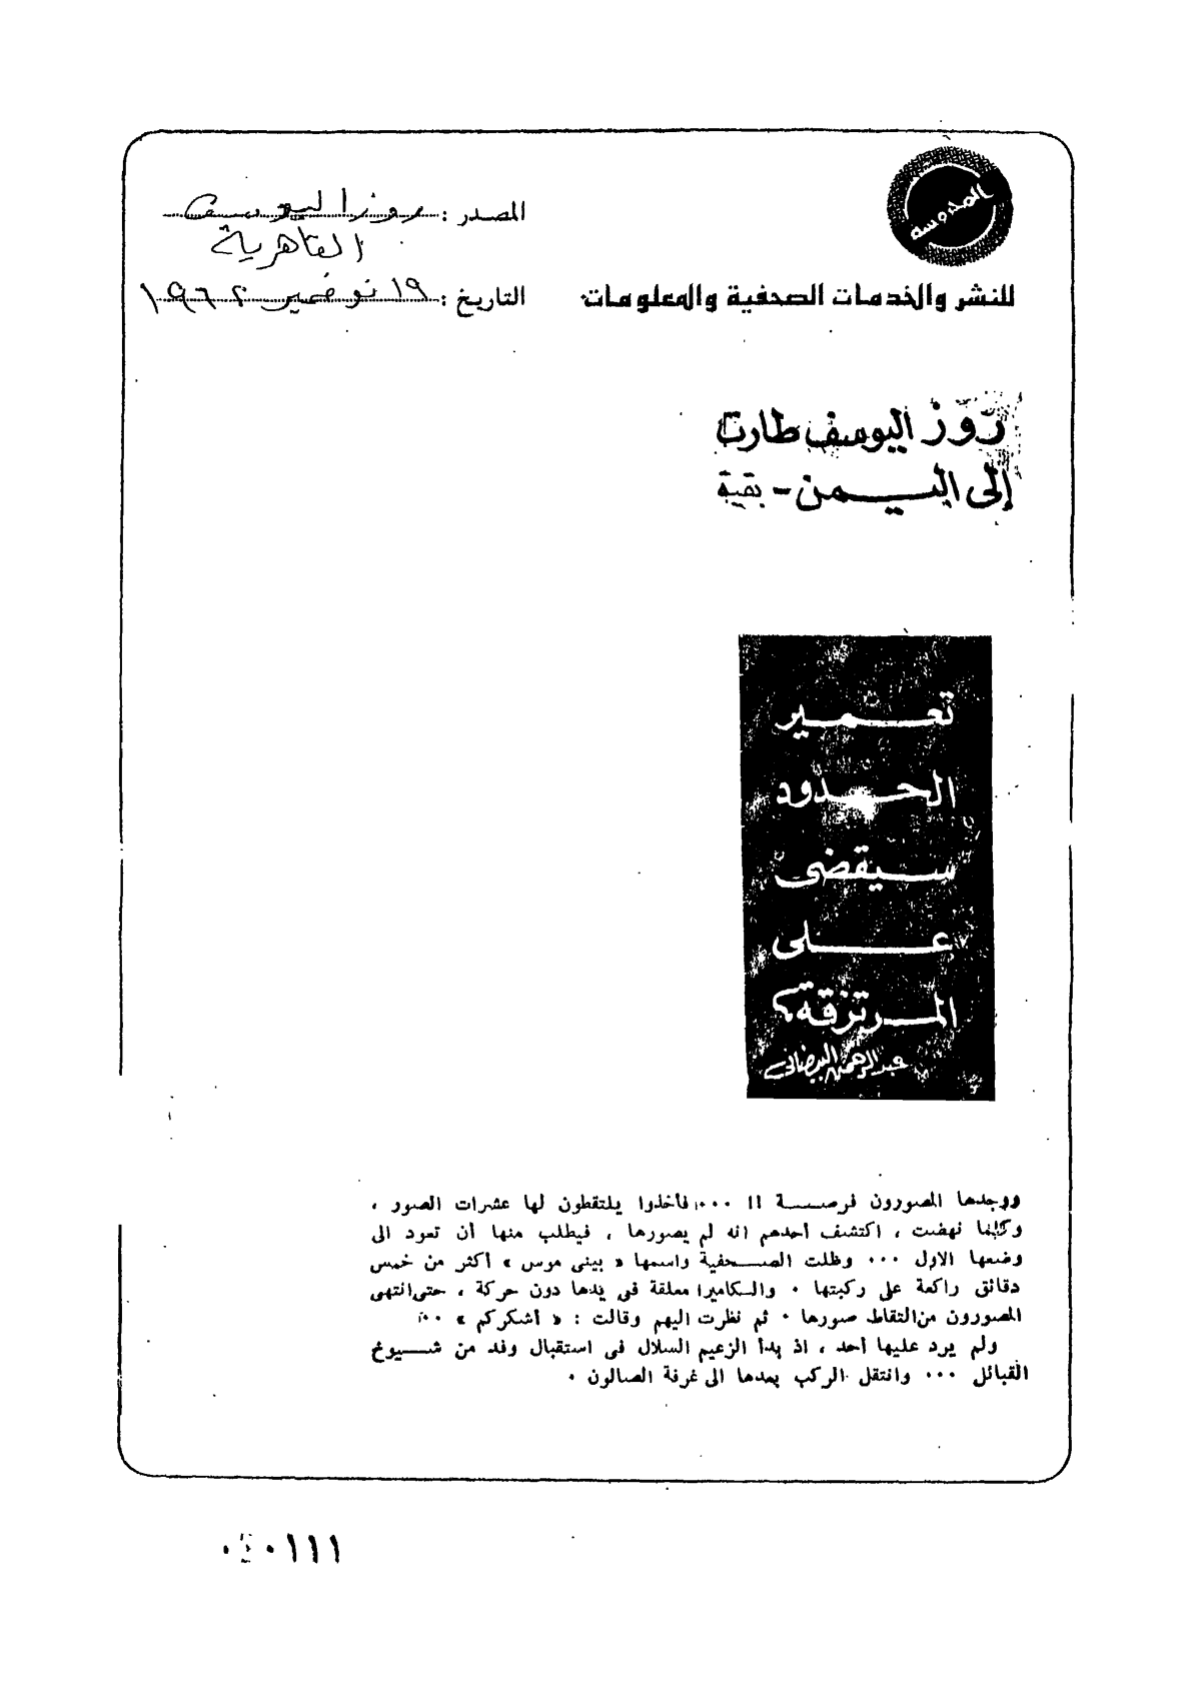 المحروسة
المصدر : روز اليوسف
القاهرية
للنشر والخدمات الصحفية والمعلومات
التاريخ : ١٩ نوفمبر ١٩٦٢
روز اليوسف طارت
إلى اليمن - بقية
تعمير
الحدود
سيقضى
على
المرتزقة
عبد الرحمن البيضاني
ووجدها المصورون فرصة !! ٠٠٠ فأخذوا يلتقطون لها عشرات الصور ،
وكلما نهضت ، اكتشف أحدهم انه لم يصورها ، فيطلب منها أن تعود الى
وضعها الاول ٠٠٠ وظلت الصحفية واسمها « بينى موس » أكثر من خمس
دقائق راكعة على ركبتها ٠ والكاميرا معلقة فى يدها دون حركة ، حتى انتهى
المصورون من التقاط صورها ٠ ثم نظرت اليهم وقالت : « أشكركم » ٠٠
ولم يرد عليها أحد ، اذ بدأ الزعيم السلال فى استقبال وفد من شيوخ
القبائل ٠٠٠ وانتقل الركب بعدها الى غرفة الصالون ٠